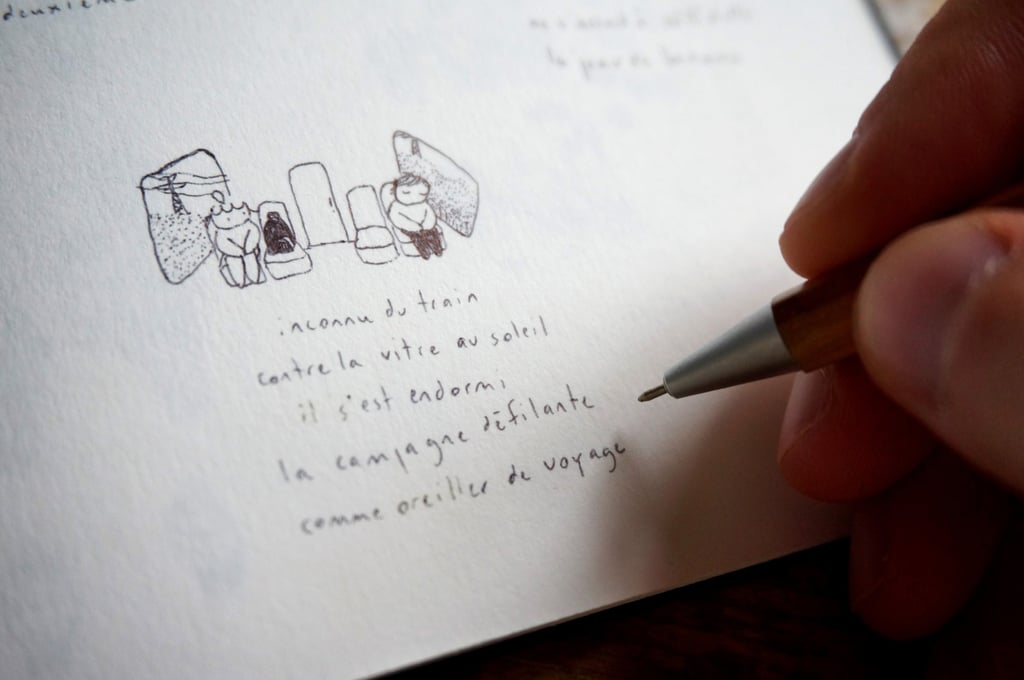 deuxième
inconnu du train
contre la vitre au soleil
il s'est endormi
la campagne défilante
comme oreiller de voyage